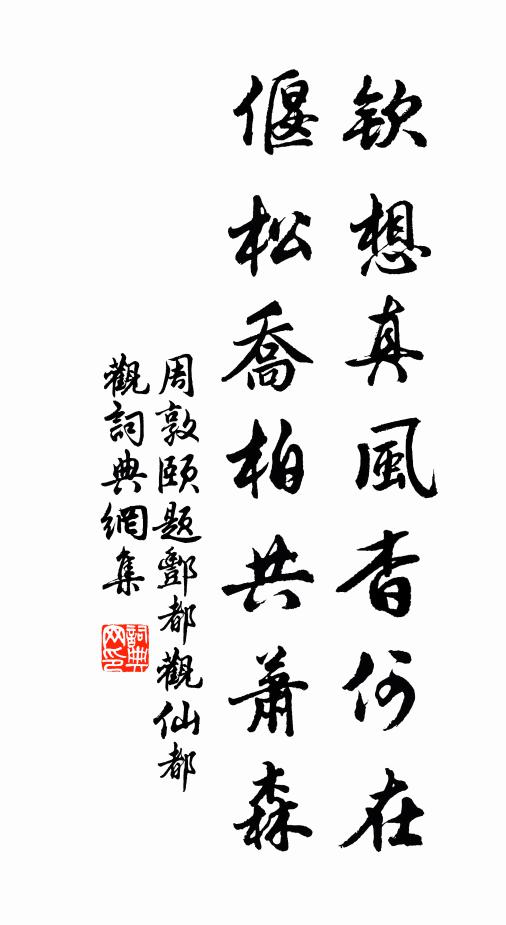 欽想真風杳何在
偃松喬柏共蕭森
周敦頤題酆都觀仙都
觀詞典網集
詞典网印